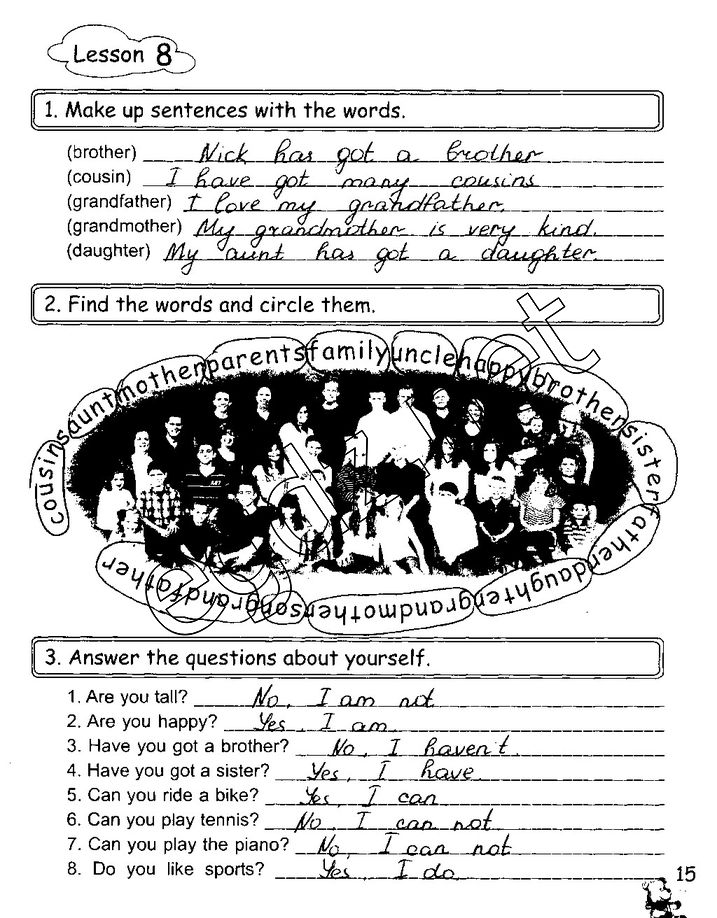 Lesson 8
1. Make up sentences with the words.
(brother) Nick has got a brother
(cousin) I have got many cousins
(grandfather) I love my grandfather.
(grandmother) My grandmother is very kind.
(daughter) My aunt has got a daughter.
2. Find the words and circle them.
cousinsauntmotherparentsfamilyunclehappybrothersisterfatherdaughtergrandmothersongrandfather
3. Answer the questions about yourself.
1. Are you tall? No, I am not
2. Are you happy? Yes, I am.
3. Have you got a brother? No, I haven't.
4. Have you got a sister? Yes, I have.
5. Can you ride a bike? Yes, I can
6. Can you play tennis? No, I can not.
7. Can you play the piano? No, I can not
8. Do you like sports? Yes, I do.
15